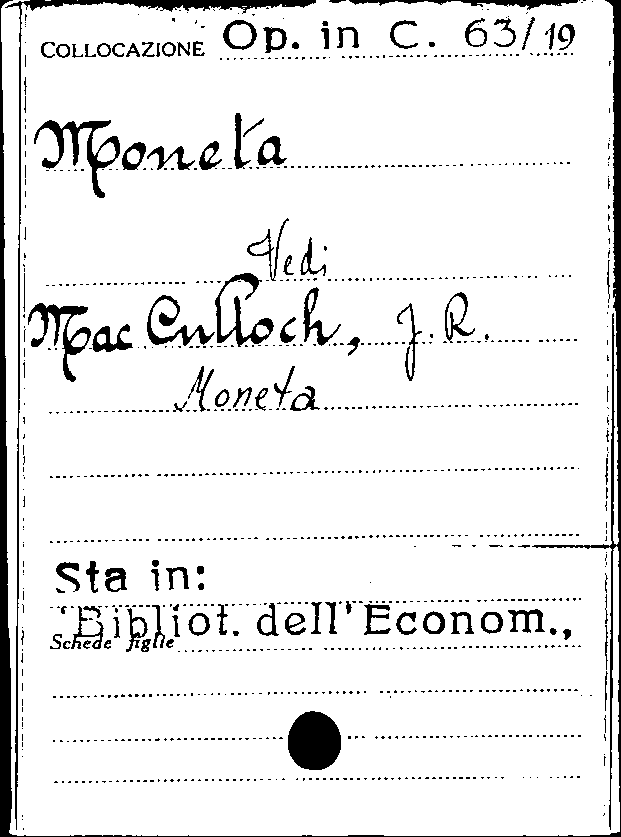 COLLOCAZIONE Op. in C. 63/19
Moneta
Vedi
Mac Culloch, J. R.
Moneta
Sta in:
'Bibliot. dell'Econom.,
Schede figlie